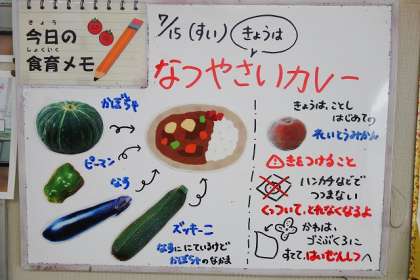 きょう
今日の
しょくいく
食育メモ
7/15 (すい) きょうは
なつやさいカレー
かぼちゃ
ピーマン
なす
ズッキーニ
なすににているけど
かぼちゃのなかま
きょうは、ことし
はじめての
れいとうみかん
きをつけること
ハンカチなどで
つつまない
くっついて、とれなくなるよ
かわは、
ゴミぶくろに
すて、はいぜんしつへ